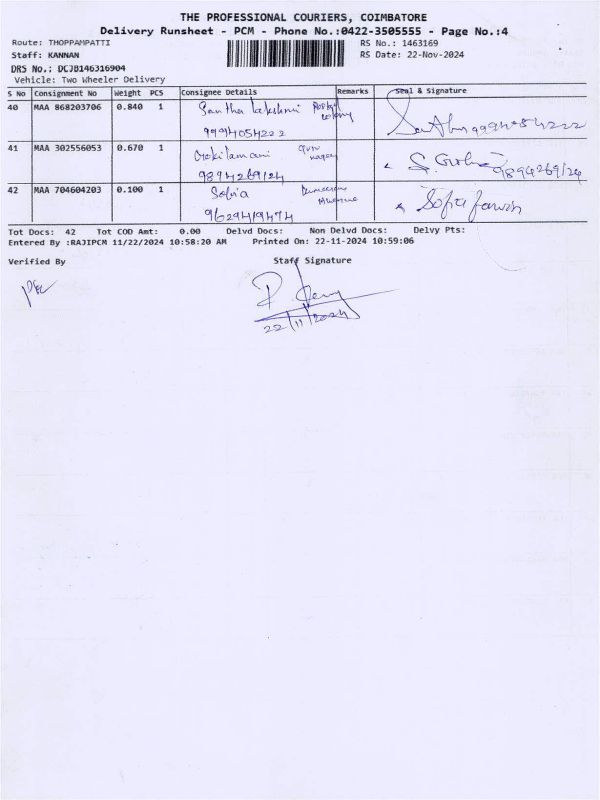 THE PROFESSIONAL COURIERS, COIMBATORE
Delivery Runsheet - PCM - Phone No.:0422-3505555 - Page No.:4
Route: THOPPAMPATTI RS No.: 1463169
Staff: KANNAN RS Date: 22-Nov-2024
DRS No.: DCJB146316904
Vehicle: Two Wheeler Delivery
S No Consignment No Weight PCS Consignee Details Remarks Seal & Signature
40 MAA 868203706 0.840 1 Santha Lakshmi colony
9994054222 9994054222
41 MAA 302556053 0.670 1 nagar
9894269124 9894269124
42 MAA 704604203 0.100 1 Sofia Avenue
9629419474 Sofia
Tot Docs: 42 Tot COD Amt: 0.00 Delvd Docs: Non Delvd Docs: Delvy Pts:
Entered By :RAJIPCM 11/22/2024 10:58:20 AM Printed On: 22-11-2024 10:59:06
Verified By Staff Signature
22/11/2024